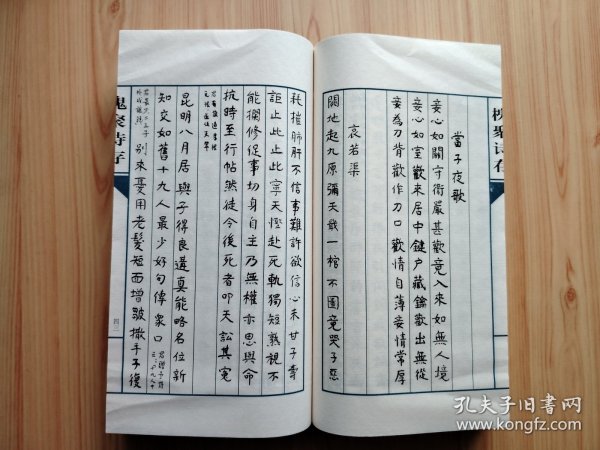 槐聚诗存
當子夜歌
妾心如關守衛嚴甚歡竟入來如無人境
妾心如室歡來居中鍵户藏鑰歡出無從
妾為刀背歡作刀口歡情自薄妾情常厚
哀若渠
闕地起九原彌天戢一棺不圖竟哭子惡
耗摧肺肝不信事難許欲信心未甘子壽
詎止此止此寧天慳赴死軌獨短熟視不
能攔修促事切身自主乃無權亦思與命
抗時至行帖然徒令後死者叩天訟其冤
昆明八月居與子得良遘真能略名位新
知交如舊十九人最少好句傳衆口
別來憂用老髮短而增皺撒手子復
槐聚诗存
四二
孔夫子旧书网
www.kongfz.com